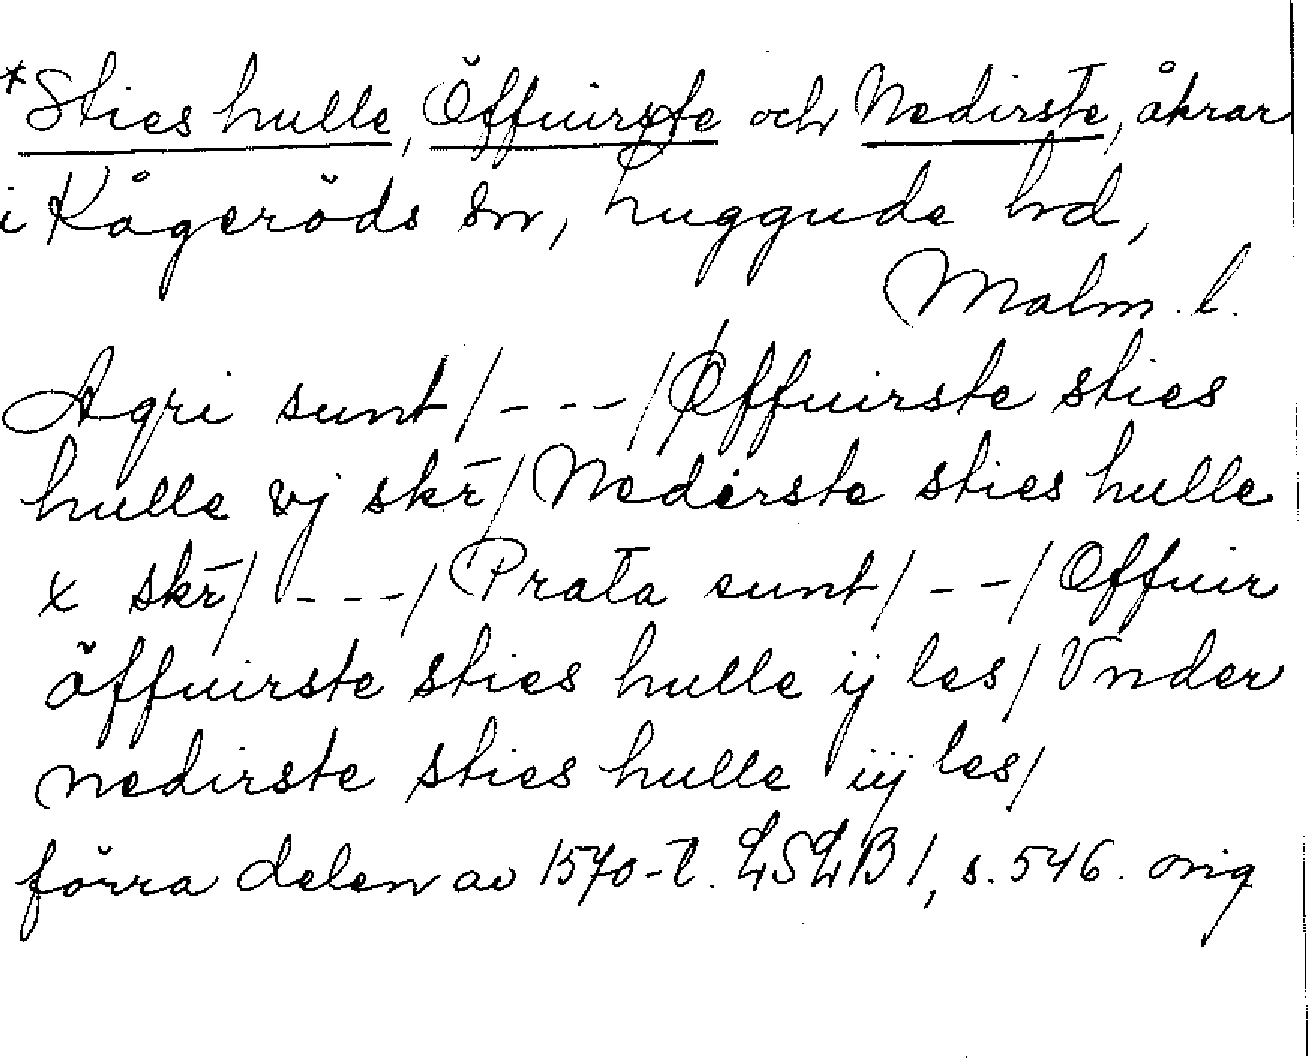 *Sties hulle, Öffuirste och Nedirste, åkrar
i Kågeröds sn, Luggude hd,
Malm. l.
Agri sunt/- - -/Øffuirste sties
hulle vj skr̄/ Nedirste sties hulle
x skr̄/ - - -/ Prata sunt/ - -/ Offuir
öffuirste sties hulle ij les/ Vnder
nedirste sties hulle iij les/
förra delen av 1570-t. LSLB 1, s. 546. orig